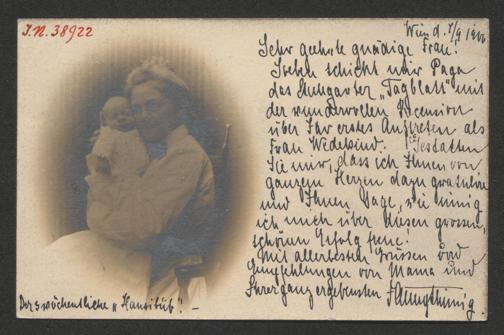 I.N. 38922
Wien d. 7/9 1906
Sehr geehrte gnädige Frau!
Soeben schickt mir Papa
das Stuttgarter „Tagblatt" mit
der wundervollen Recension
über Ihr erstes Auftreten als
Frau Wedekind. Gestatten
Sie mir, dass ich Ihnen von
ganzem Herzen dazu gratuliere
und Ihnen sage, wie innig
ich mich über diesen grossen,
schönen Erfolg freue!
Mit allerbesten Grüssen und
Empfehlungen von Mama und
Ihrer ganz ergebensten
Der 3wöchentliche „Hansibub"! –